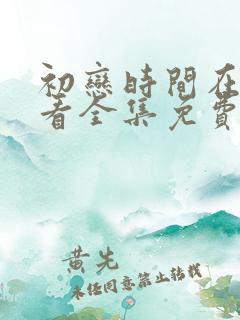 初戀時間在
看全集免費
黃先
未任同意禁止轉載